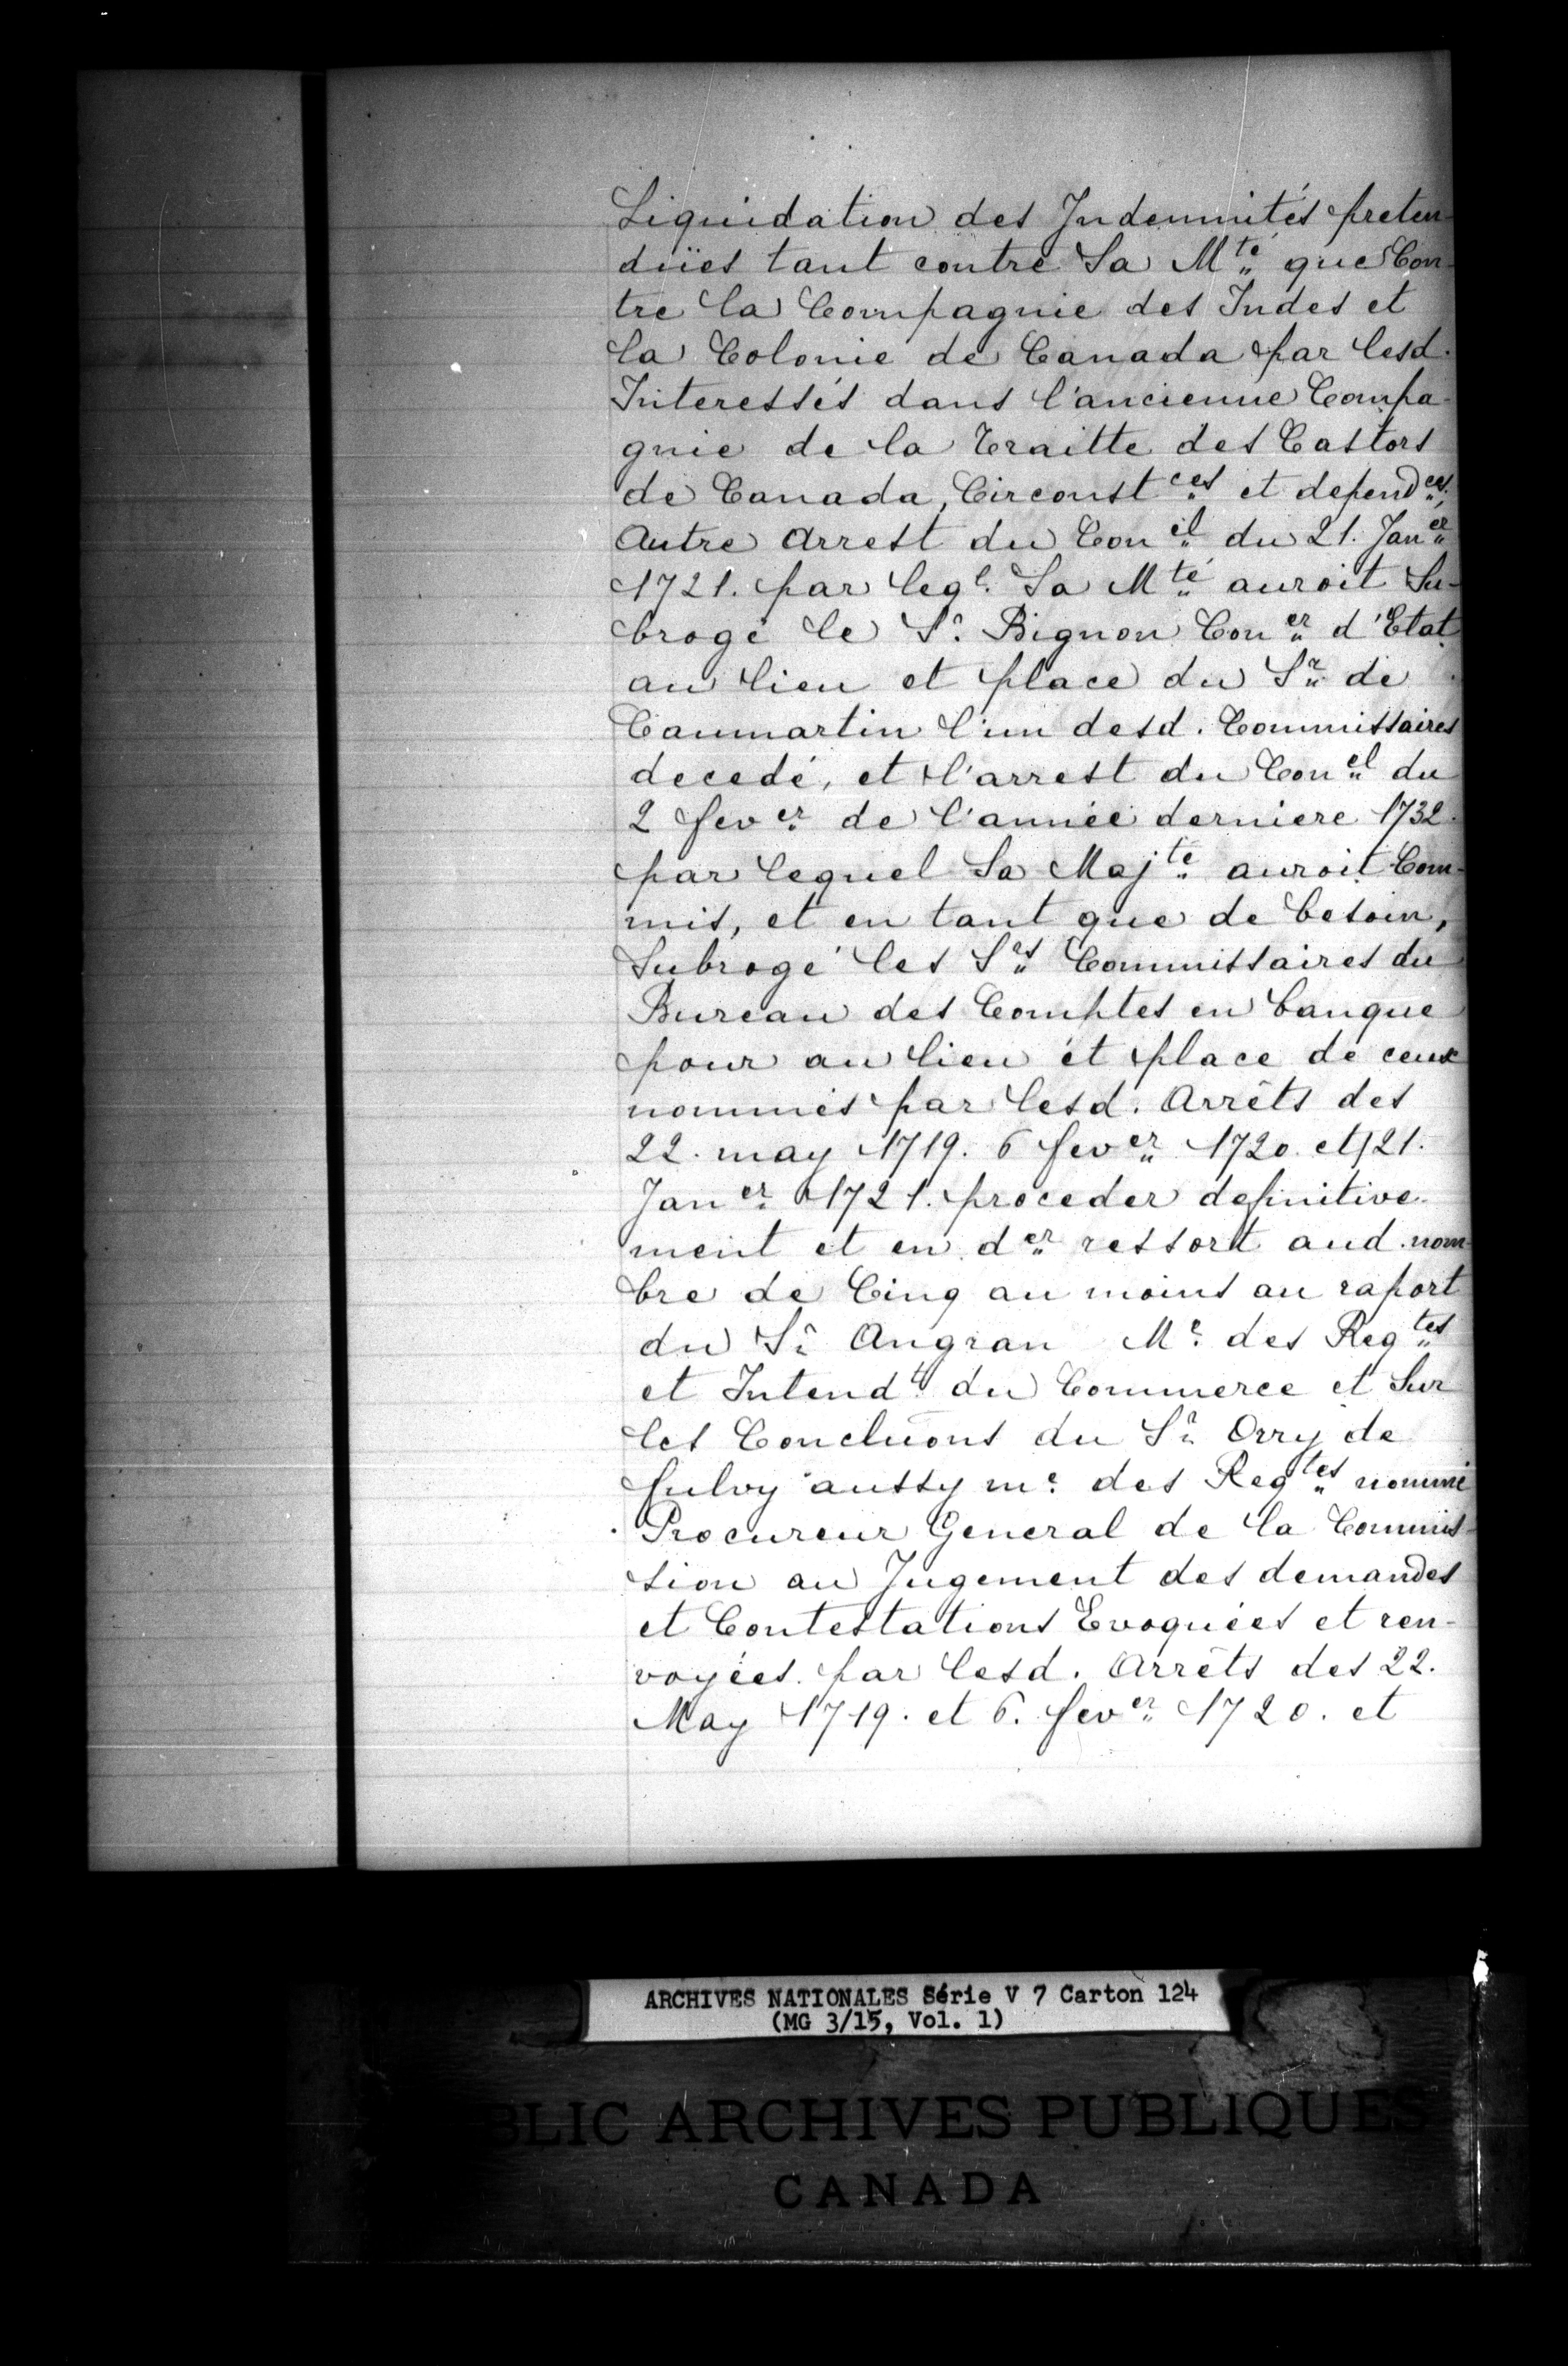 Liquidation des Indemnités preten-
düies tant contre Sa Mté que Con-
tre la Compagnie des Indes et
la Colonie de Canada par lesd.
Interessés dans l'ancienne Compa-
gnie de la Traitte des Castors
de Canada, Circonstces et dependces.
Autre Arrest du Conil du 21. Janer
1721. par leql. Sa Mté auroit Su-
brogé le Sr. Bignon Coner d'Etat
au lieu et place du Sr de
Caumartin l'un desd. Commissaires
decedé, et l'arrest du Conel du
2 fever de l'année derniere 1732.
par lequel Sa Majté auroit Com-
mis, et en tant que de besoin,
Subrogé les Srs Commissaires du
Bureau des Comptes en banque
pour au lieu et place de ceux
nommés par lesd. Arrêts des
22. may 1719. 6 fever 1720. et 21.
Janer 1721. proceder definitive-
ment et en der ressort aud. nom-
bre de Cinq au moins au raport
du Sr Angran Me. des Reqtes
et Intendt. du Commerce et Sur
les Concluons du Sr Orry de
fulvy aussy me. des Reqtes nommé
Procureur General de la Commis-
sion au Jugement des demandes
et Contestations Evoquées et ren-
voyées par lesd. Arrêts des 22.
May 1719. et 6. fever 1720. et
ARCHIVES NATIONALES Série V 7 Carton 124
(MG 3/15, Vol. 1)
BLIC ARCHIVES PUBLIQUES
CANADA